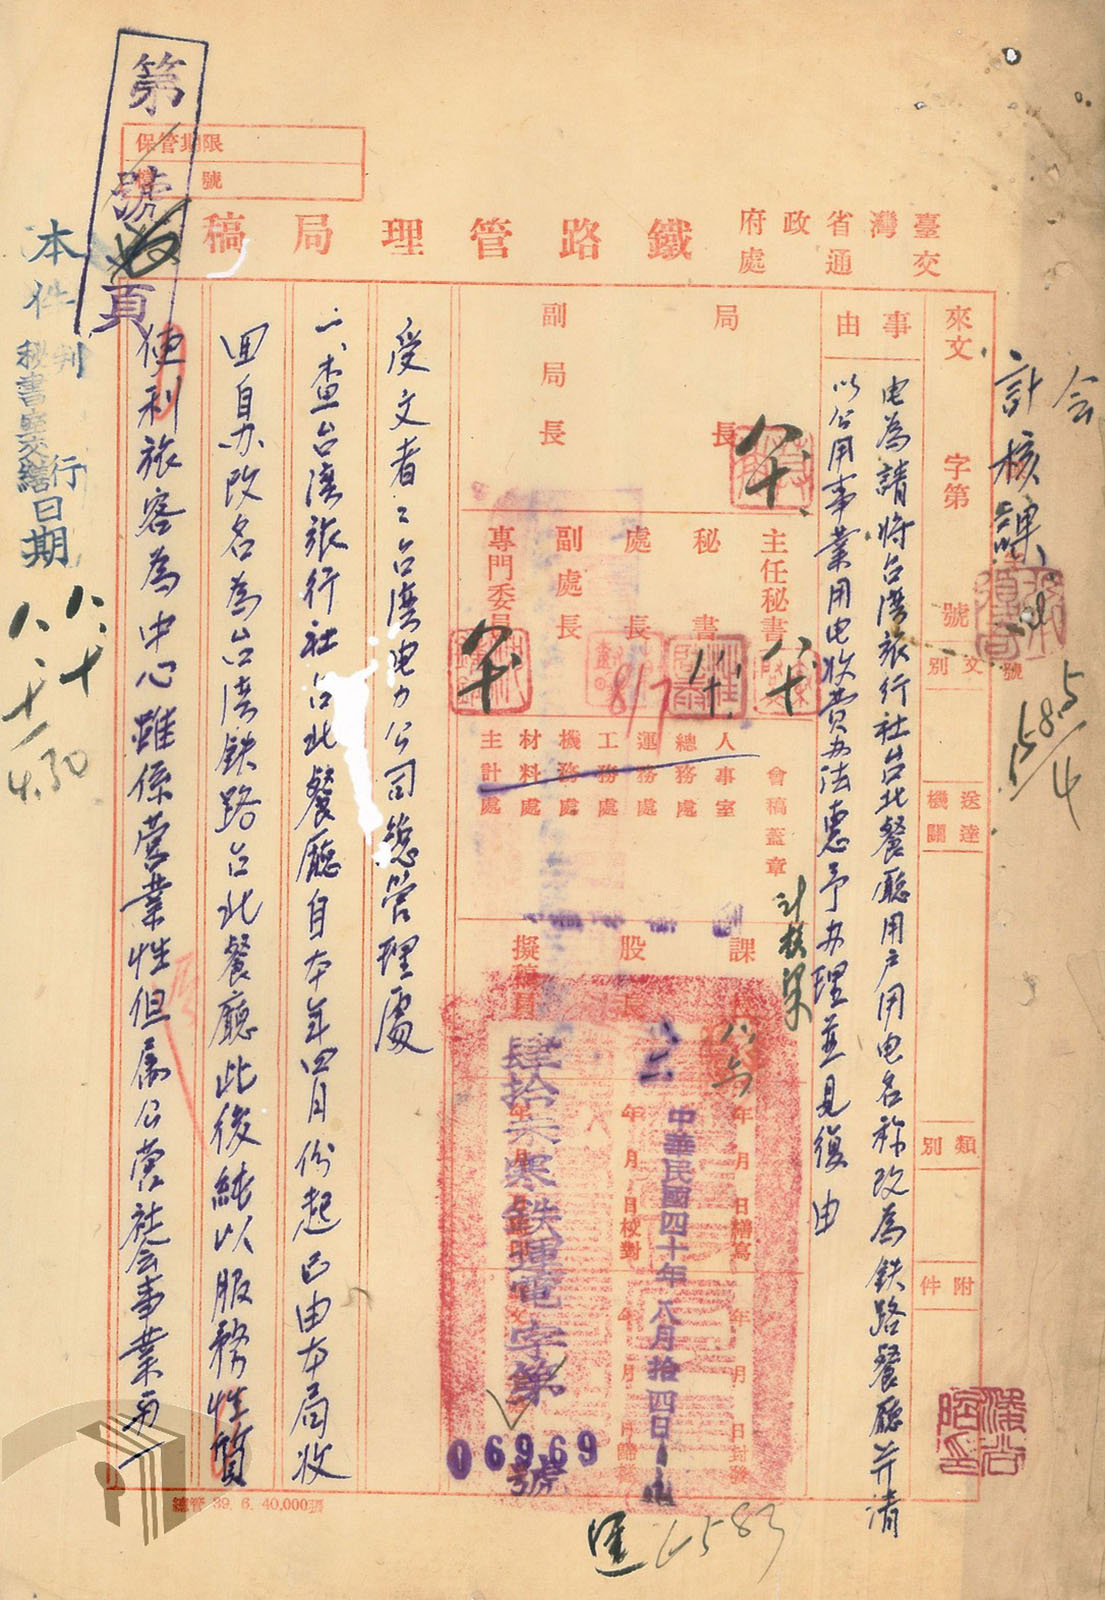 臺灣省政府
交通處
鐵路管理局稿
保管期限
號
第
號
頁
本件
判行
秘書室交繕日期
八、十
八、十一
4.30
會
計核課
來文
字第
號
文別
送達機關
類別
附件
事由
电為請將台湾旅行社台北餐廳用户用电名称改為鉄路餐廳并請
以公用事業用电收費办法惠予办理並見復由
局長
副局長
主任秘書
秘書
處長
副處長
專門委員
8/7
會稿蓋章
人事室
總務處
運務處
工務處
機務處
材料處
主計處
課長
股長
擬稿員
年月日繕寫
年月日校對
年月日封發
中華民國四十年八月拾四日
鉄運電字第
06969
號
受文者：台湾电力公司總管理處
一、查台湾旅行社台北餐廳自本年四月份起已由本局收
回自办改名為台湾鉄路台北餐廳此後純以服務性質
便利旅客為中心雖係营業性但屬公营社会事業而一
總管 39. 6. 40,000張